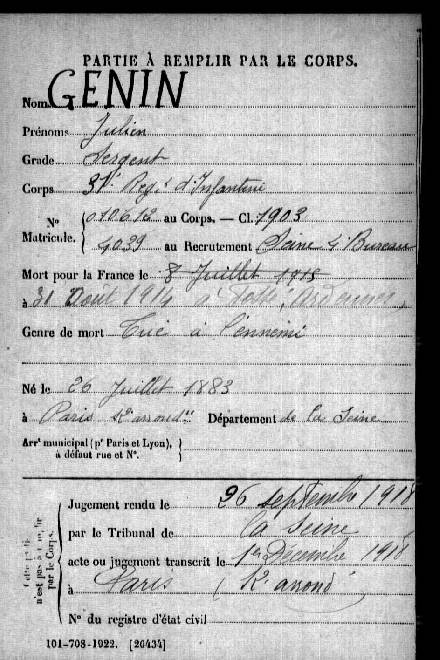 PARTIE À REMPLIR PAR LE CORPS.
Nom GENIN
Prénoms Julien
Grade Sergent
Corps Regt d'Infanterie
No Matricule. 010612 au Corps. — Cl. 1903
4039 au Recrutement Seine 4e Bureau
Mort pour la France le 8 Juillet 1918
à 31 Août 1914 à Ardennes
Genre de mort Tué à l'ennemi
Né le 26 Juillet 1883
à Paris arrondt Département de la Seine
Arrt municipal (pr Paris et Lyon),
à défaut rue et No.
n'est pas à
par le Corps.
Jugement rendu le 26 septembre 1918
par le Tribunal de la Seine
acte ou jugement transcrit le 1er Décembre 1918
à Paris arrondt
No du registre d'état civil
101-708-1922. [26434]